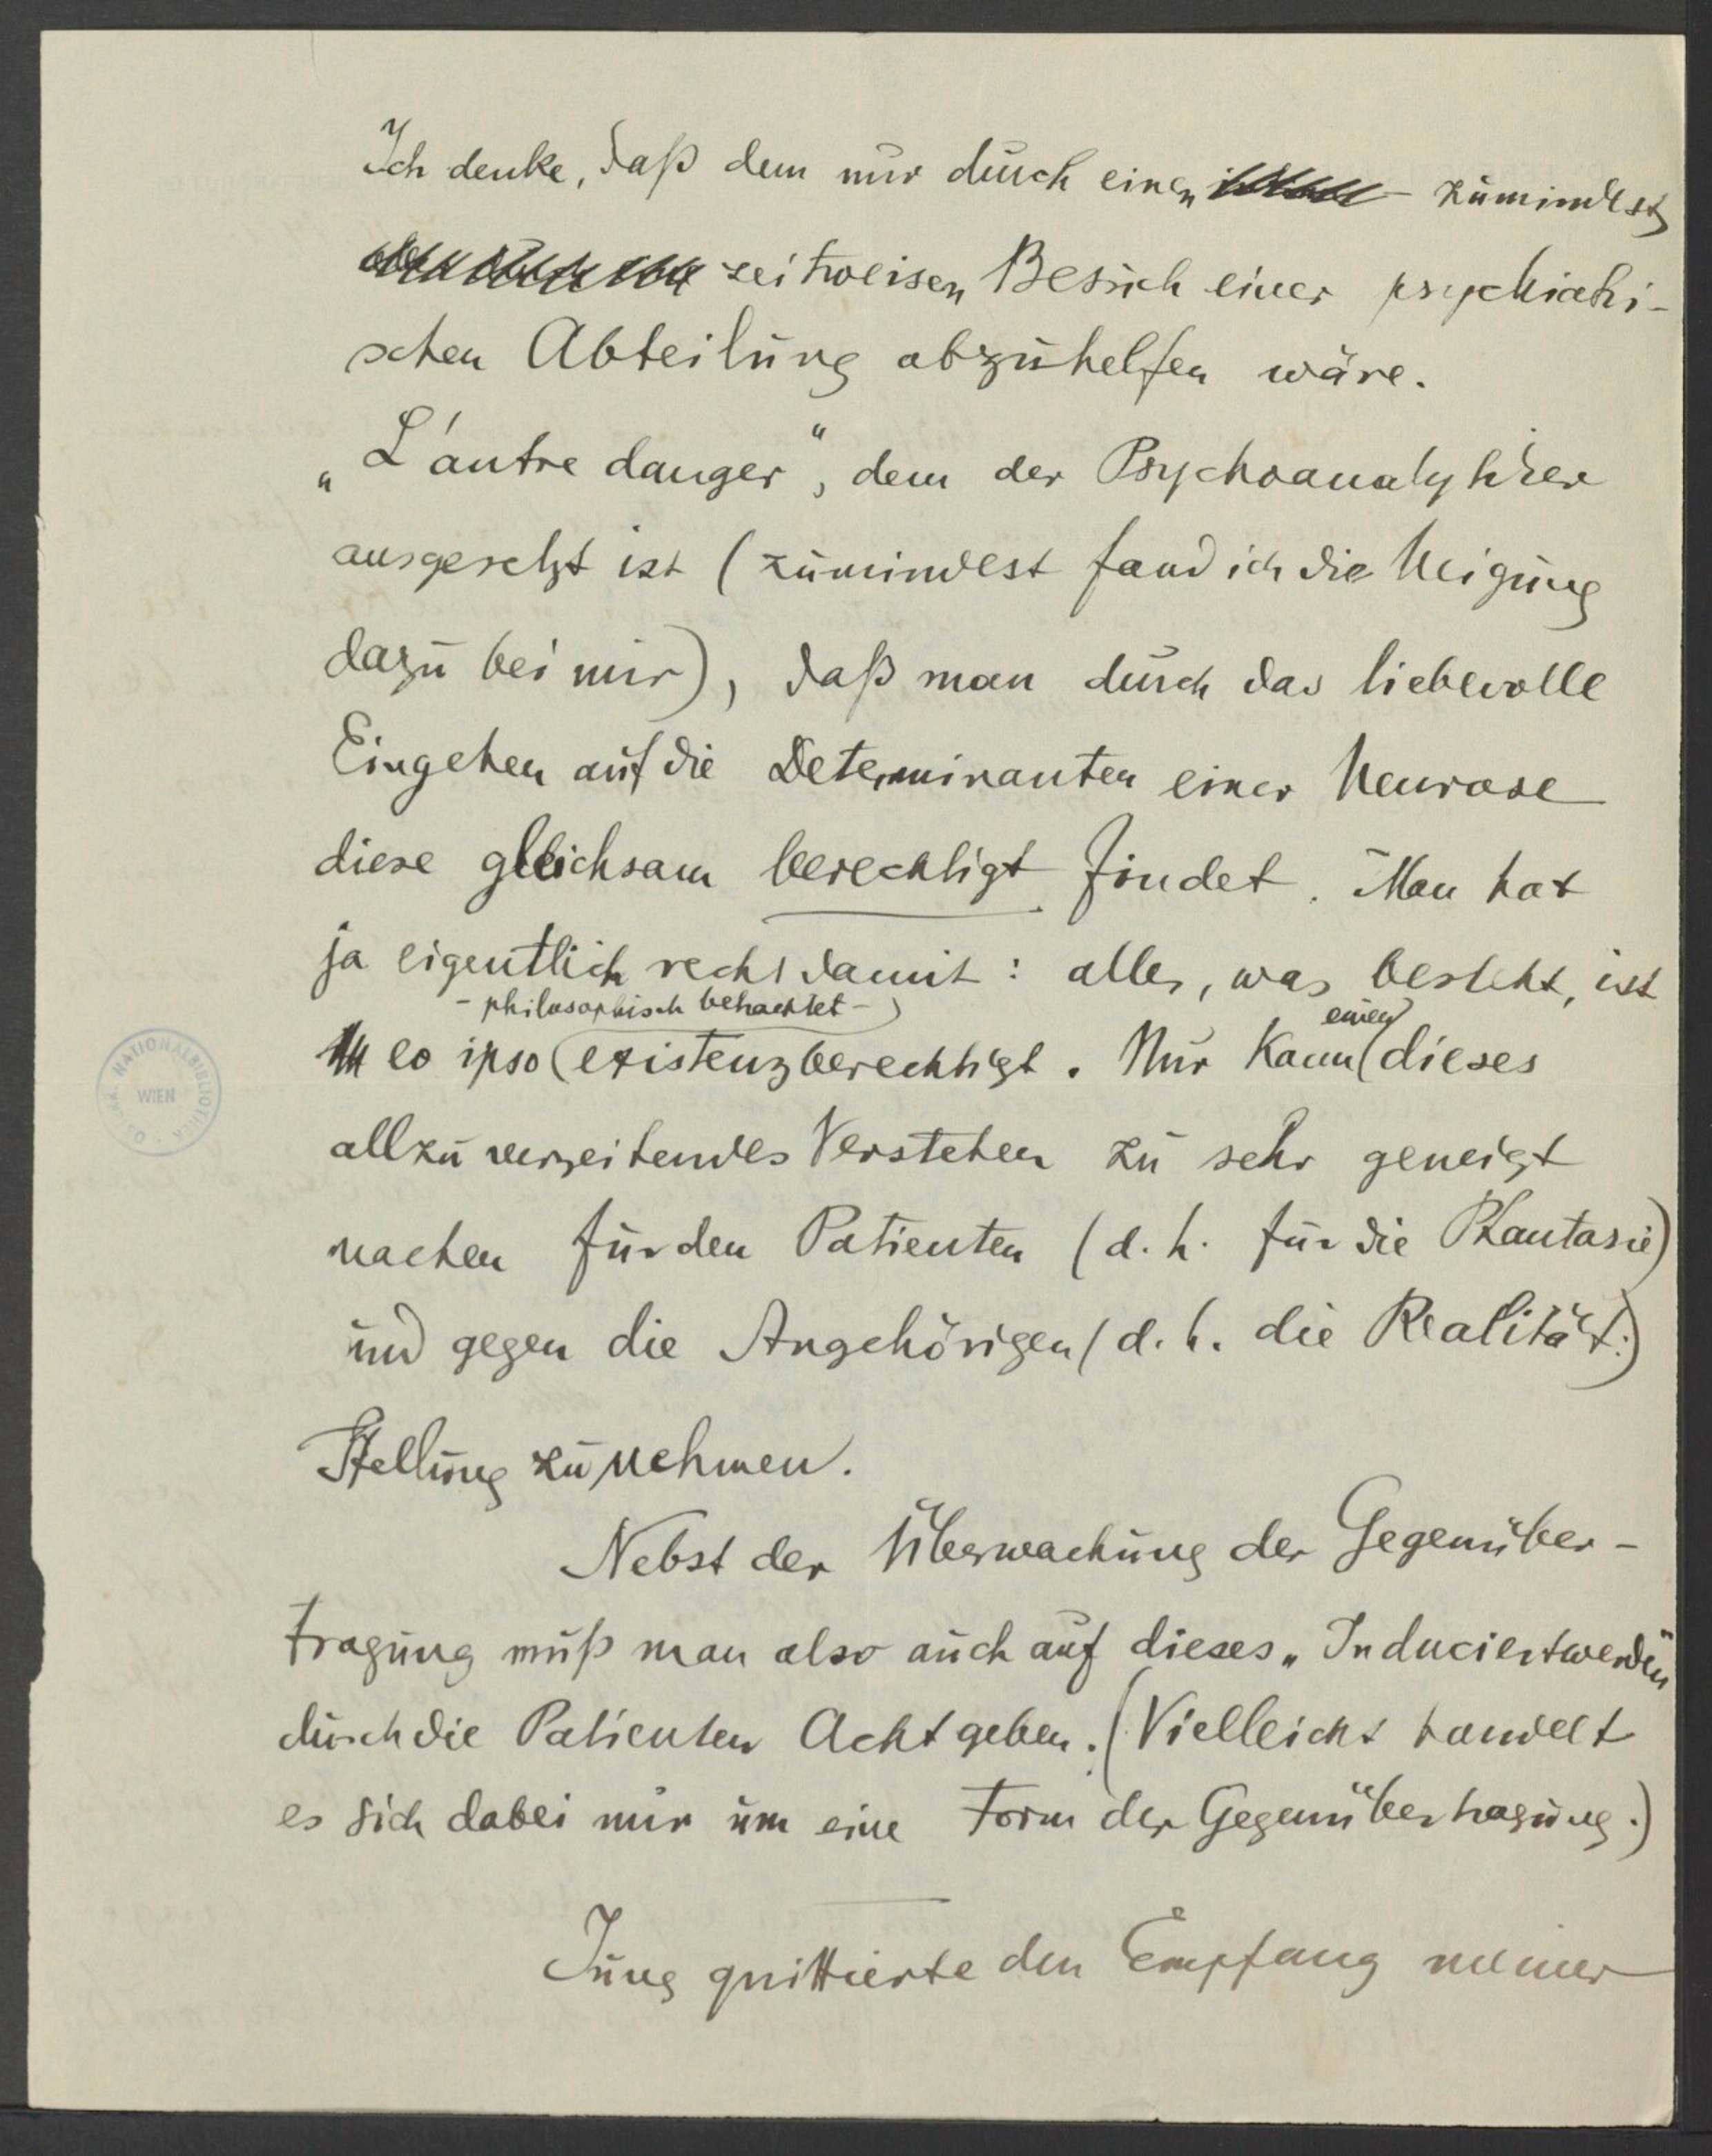 Ich denke, daß dem nur durch einen – zumindest
zeitweisen Besuch einer psychiatri-
schen Abteilung abzuhelfen wäre.
„L'autre danger“, dem der Psychoanalytiker
ausgesetzt ist (zumindest fand ich die Neigung
dazu bei mir), daß man durch das liebevolle
Eingehen auf die Determinanten einer Neurose
diese gleichsam berechtigt findet. Man hat
ja eigentlich recht damit: alles, was besteht, ist
– philosophisch betrachtet –
eo ipso existenzberechtigt. Nur kann einen dieses
allzu verzeihendes Verstehen zu sehr geneigt
machen für den Patienten (d. h. für die Phantasie)
und gegen die Angehörigen (d. h. die Realität.)
Stellung zu nehmen.
Nebst der Überwachung der Gegenüber-
tragung muß man also auch auf dieses „Induciertwerden“
durch die Patienten Acht geben. (Vielleicht handelt
es sich dabei nur um eine Form der Gegenübertragung.)
Jung quittierte den Empfang meiner
ÖST. NATIONALBIBLIOTHEK
WIEN